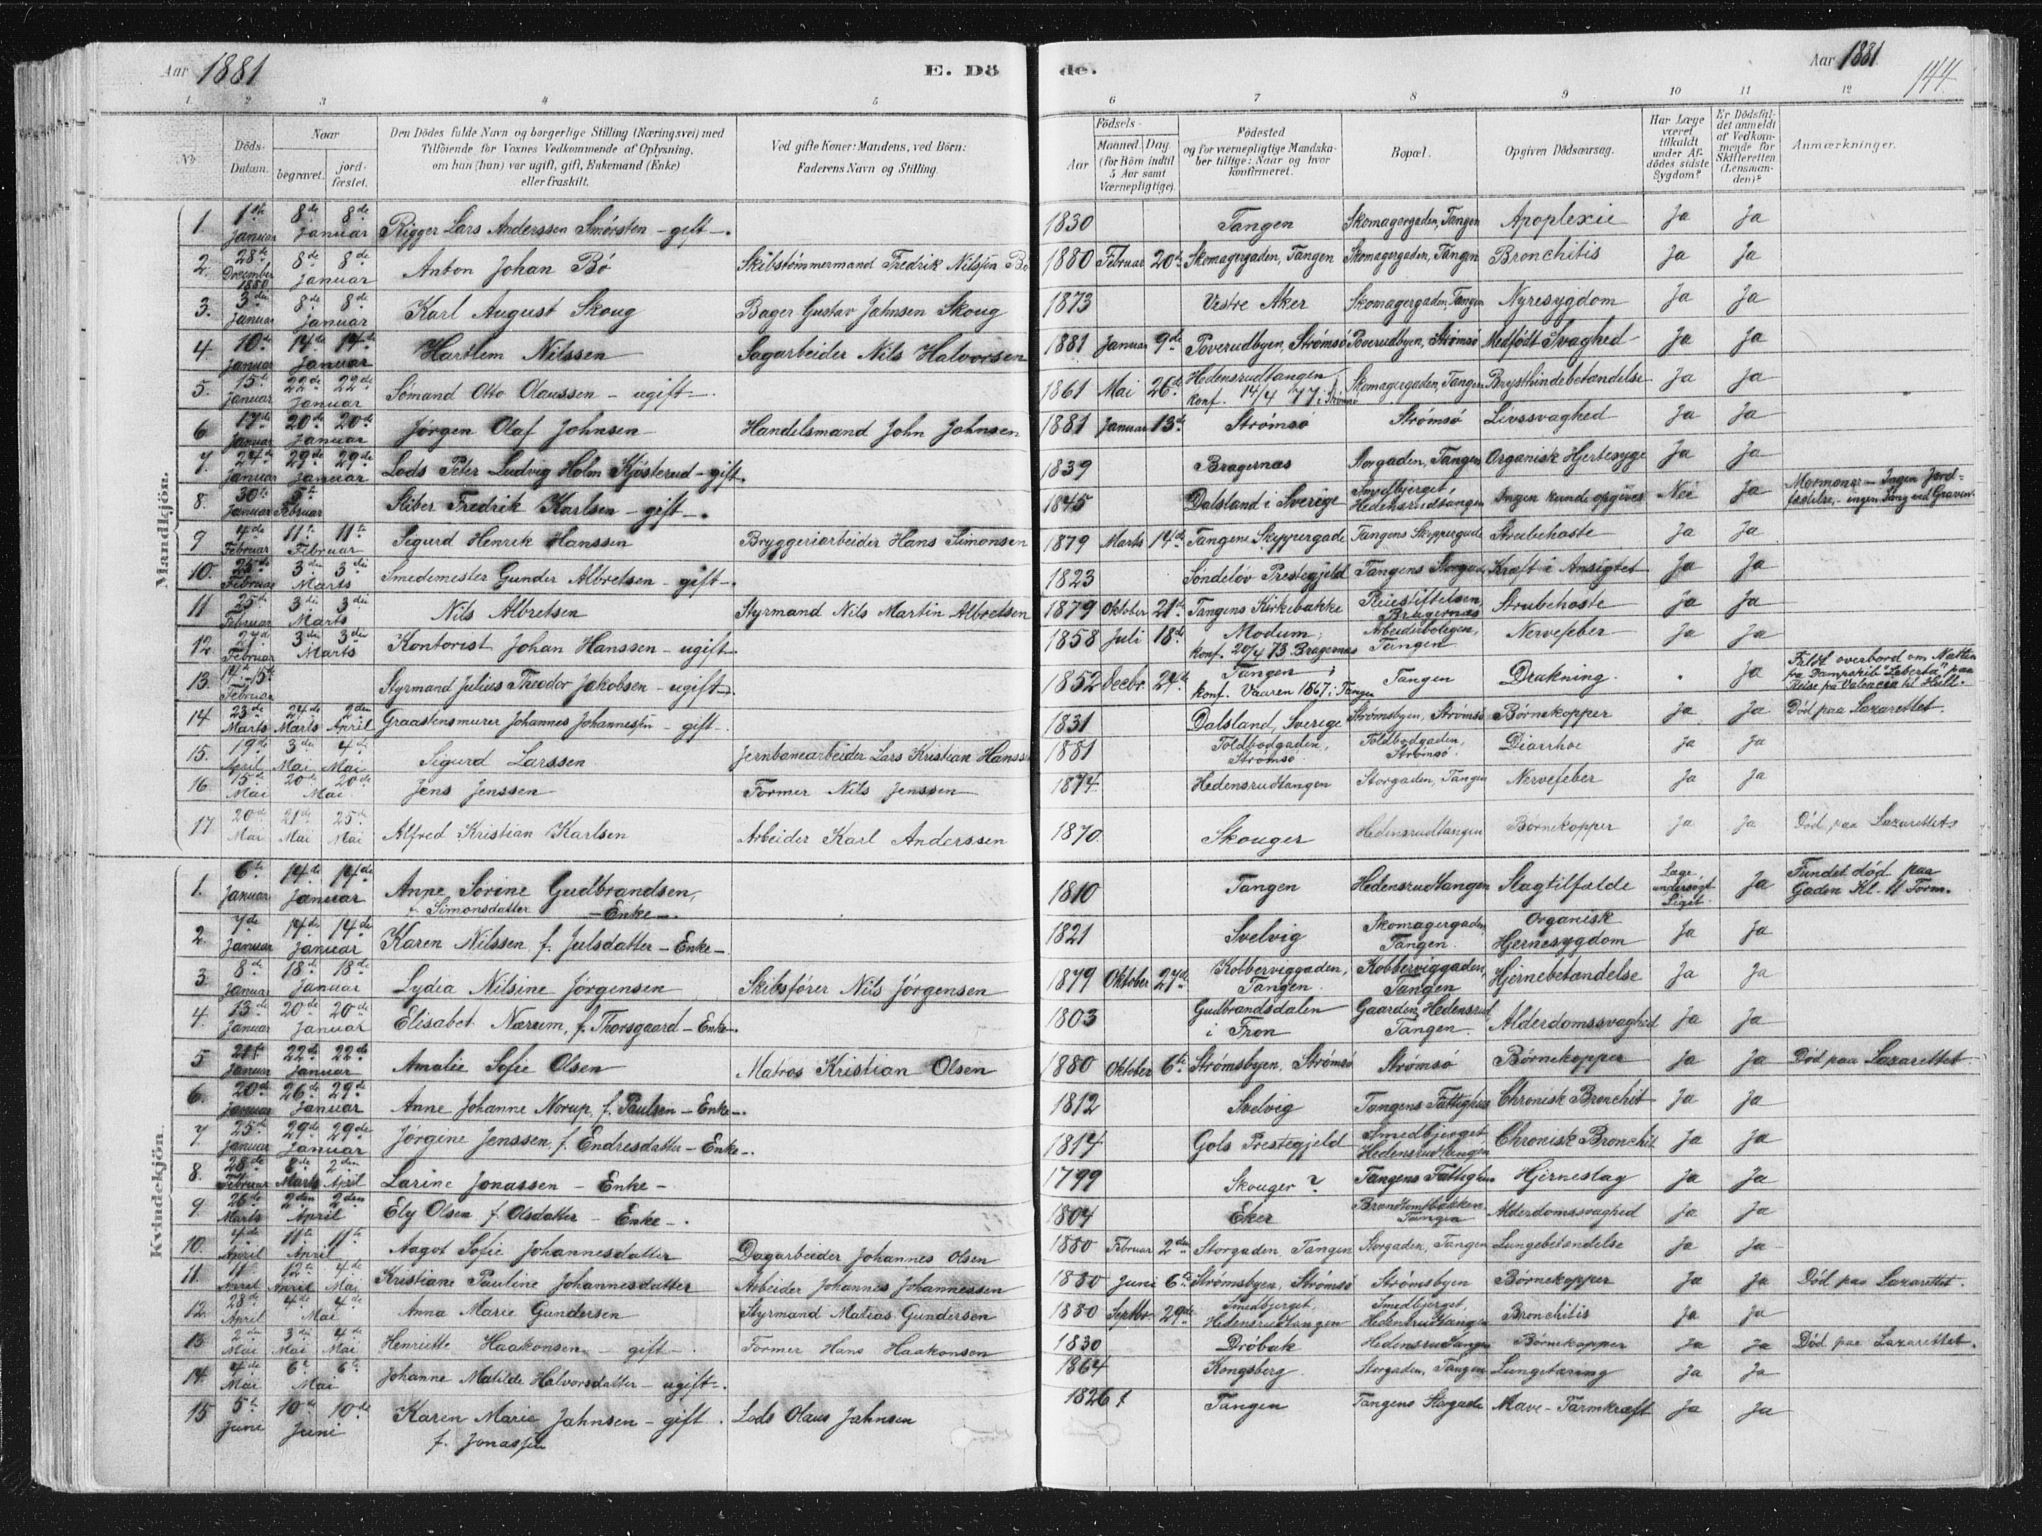 Aar 1881 E. Dö de. Aar 1881 144.
1 2 3 4 5 6 7 8 9 10 11 12
No. Döds-Datum. Naar begravet. jordfæstet. Den Dödes fulde Navn og borgerlige Stilling (Næringsvei) med Tilföiende for Voxnes Vedkommende af Oplysning, om han (hun) var ugift, gift, Enkemand (Enke) eller fraskilt. Ved gifte Koner: Mandens, ved Börn: Faderens Navn og Stilling. Födsels- Aar Maaned. Dag. (for Börn indtil 5 Aar samt Værnepligtige). Födested og for værnepligtige Mandskaber tillige: Naar og hvor konfirmeret. Bopæl. Opgiven Dödsaarsag. Har Læge været tilkaldt under Afdödes sidste Sygdom? Er Dödsfaldet anmeldt af Vedkommende for Skifteretten (Lensmanden)? Anmærkninger.
Mandkjön.
1. 1ste Januar 8de 8de Januar Rigger Lars Anderssen Smørsten - gift -. 1830 Tangen Skomagergaden, Tangen Apoplexie Ja Ja
2. 28de December 1880 8de 8de Januar Anton Johan Bö Skibstømmermand Fredrik Nilssen Bö 1880 Februar 20de Skomagergaden, Tangen Skomagergaden, Tangen Bronchitis Ja Ja
3. 3die Januar 8de 8de Januar Karl August Skoug Bager Gustav Jahnsen Skoug 1873 Vestre Aker Skomagergaden, Tangen Nyresygdom Ja Ja
4. 10de Januar 14de 14de Januar Hartlem Nilssen Sagarbeider Nils Halvorsen 1881 Januar 9de Poverudbyen, Strømsø Poverudbyen, Strømsø Medfødt Svaghed Ja Ja
5. 15de Januar 22de 22de Januar Sömand Otto Olaussen - ugift -. 1861 Mai 26de Hedensrudtangen konf. 14/4 77 i Strømsø Skomagergaden, Tangen Brysthindebetændelse Ja Ja
6 17de Januar 20de 20de Januar Jørgen Olaf Johnsen Handelsmand John Johnsen 1881 Januar 13de Strømsø Strømsø Livssvaghed Ja Ja
7. 24de Januar 29de 29de Januar Lods Peter Ludvig Holm Kjøsterud - gift. 1839 Bragernæs Storgaden, Tangen Organisk Hjertesyge Ja Ja
8. 30te Januar 5te Februar Stiber Fredrik Karlsen - gift -. 1845 Dalsland i Sverige Smedbjerget, Hedensrudtangen Ingen kunde opgives Nei Ja Mormoner - Ingen Jordfæstelse, - ingen Sang ved Graven.
9 4de Februar 11te 11te Februar Sigurd Henrik Hanssen Bryggeriarbeider Hans Simonsen 1879 Marts 14de Tangens Skippergade Tangens Skippergade Strubehoste Ja Ja
10. 25de Februar 3die 3die Marts Smedemester Gunder Albretsen - gift -. 1823 Söndeløv Prestegjeld Tangens Storgade Kræft i Ansigtet Ja Ja
11 25de Februar 3die 3die Marts Nils Albretsen Styrmand Nils Martin Albretsen 1879 Oktober 21de Tangens Kirkebakke Reiestiftelsen, Bragernæs Strubehoste Ja Ja
12. 27de Februar 3die 3die Marts Kontorist Johan Hanssen - ugift 1858 Juli 18de Modum, konf. 20/4 73 Bragernæs Arbeiderboligen, Tangen Nervefeber Ja Ja
13. 14de-15de Februar Styrmand Julius Theodor Jakobsen - ugift -. 1852 Decbr. 24de Tangen konf. Vaaren 1867 i Tangen Tangen Drukning. Ja Faldt overbord om Natten fra Dampskib "Leberta" paa Reise fra Valencia til Hull.
14 23de Marts 24de Marts 2den April Graastensmurer Johannes Johannessen - gift -. 1831 Dalsland, Sverige Strømsbyen, Strømsø Børnekopper Ja Ja Död paa Lazarettet.
15. 19de April 3die Mai 4de Mai Sigurd Larssen Jernbanearbeider Lars Kristian Hanssen 1881 Toldbodgaden, Strømsø. Toldbodgaden, Strømsø. Diarrhoe Ja Ja
16. 15de Mai 20de 20de Mai Jens Jenssen Former Nils Jenssen 1874. Hedensrudtangen Storgaden, Tangen Nervefeber Ja Ja
17 20de Mai 21de Mai 25de Mai Alfred Kristian Karlsen Arbeider Karl Anderssen 1870. Skouger Hedensrudtangen Børnekopper Ja Ja Död paa Lazarettet
Kvindekjön
1. 6te Januar 14de 14de Januar Anne Sørine Gudbrandsen, f. Simonsdatter - Enke -. 1810 Tangen Hedensrudtangen Slagtilfælde Læge undersøgt Liget. Ja Fundet död paa Gaden Kl. 11 Form.
2. 7de Januar 14de 14de Januar Karen Nilssen, f. Julsdatter - Enke - 1821 Svelvig Skomagergaden Tangen. Organisk Hjernesygdom Ja Ja
3 8de Januar 18de 18de Januar Lydia Nilsine Jørgensen Skibsfører Nils Jørgensen 1879 Oktober 27de Kobberviggaden, Tangen. Kobberviggaden, Tangen Hjernebetændelse Ja Ja
4. 13de Januar 20de 20de Januar Elisabet Nærum, f. Thorsgaard - Enke -. 1803 Gudbrandsdalen i Fron Gaarden Hedensrud Tangen. Alderdomssvaghed Ja Ja
5 21de Januar 22de 22de Januar Amalie Sofie Olsen Matros Kristian Olsen 1880 Oktober 6te Strømsbyen, Strømsø Strømsø Børnekopper Ja Ja Död paa Lazarettet
6. 20de Januar 26de 29de Januar Anne Johanne Norup, f. Paulsen - Enke -. 1812 Svelvig Tangens Fattighus Chronisk Bronchit Ja Ja
7. 25de Januar 29de 29de Januar Jørgine Jenssen, f. Endresdatter - Enke -. 1814 Gols Prestegjeld Smedbjerget Hedensrudtangen Chronisk Bronchit Ja Ja
8. 28de Februar 8de Marts 2den April Larine Jonassen - Enke - 1799 Skouger? Tangens Fattighus Hjerneslag Ja Ja
9. 26de Marts 2den 2den April Ely Olsen f. Olsdatter - Enke -. 1804 Eker Brandtomtbakken Tangen Alderdomssvaghed Ja Ja
10. 4de April 11te 11te April Aagot Sofie Johannesdatter Dagarbeider Johannes Olsen 1880 Februar 2den Storgaden, Tangen Storgaden, Tangen Lungebetændelse Ja Ja
11. 11 April 12te April 4de Mai Kristiane Pauline Johannesdatter Arbeider Johannes Johannessen 1880 Juni 6te Strømsbyen, Strømsø Strømsbyen Børnekopper Ja Ja Död paa Lazarettet.
12. 28de April 4de 4de Mai Anna Marie Gundersen Styrmand Matias Gundersen 1880 Septbr. 29de Smedbjerget, Hedensrudtangen Smedbjerget, Hedensrudtangen Bronchitis Ja Ja
13 2den Mai 3die Mai 4de Mai Henriette Haakonsen - gift -. Former Hans Haakonsen 1830 Drøbak Hedensrudtangen Børnekopper Ja Ja Död paa Lazarettet.
14. 4de Mai 6te 6te Mai Johanne Matilde Halvorsdatter - ugift -. 1864 Kongsberg Storgaden, Tangen Lungetæring Ja Ja
15 5te Juni 10de 10de Juni Karen Marie Jahnsen - gift. f. Jonassen Lods Olaus Jahnsen 1826 Tangen Tangens Storgade Mave-Tarmkræft Ja Ja